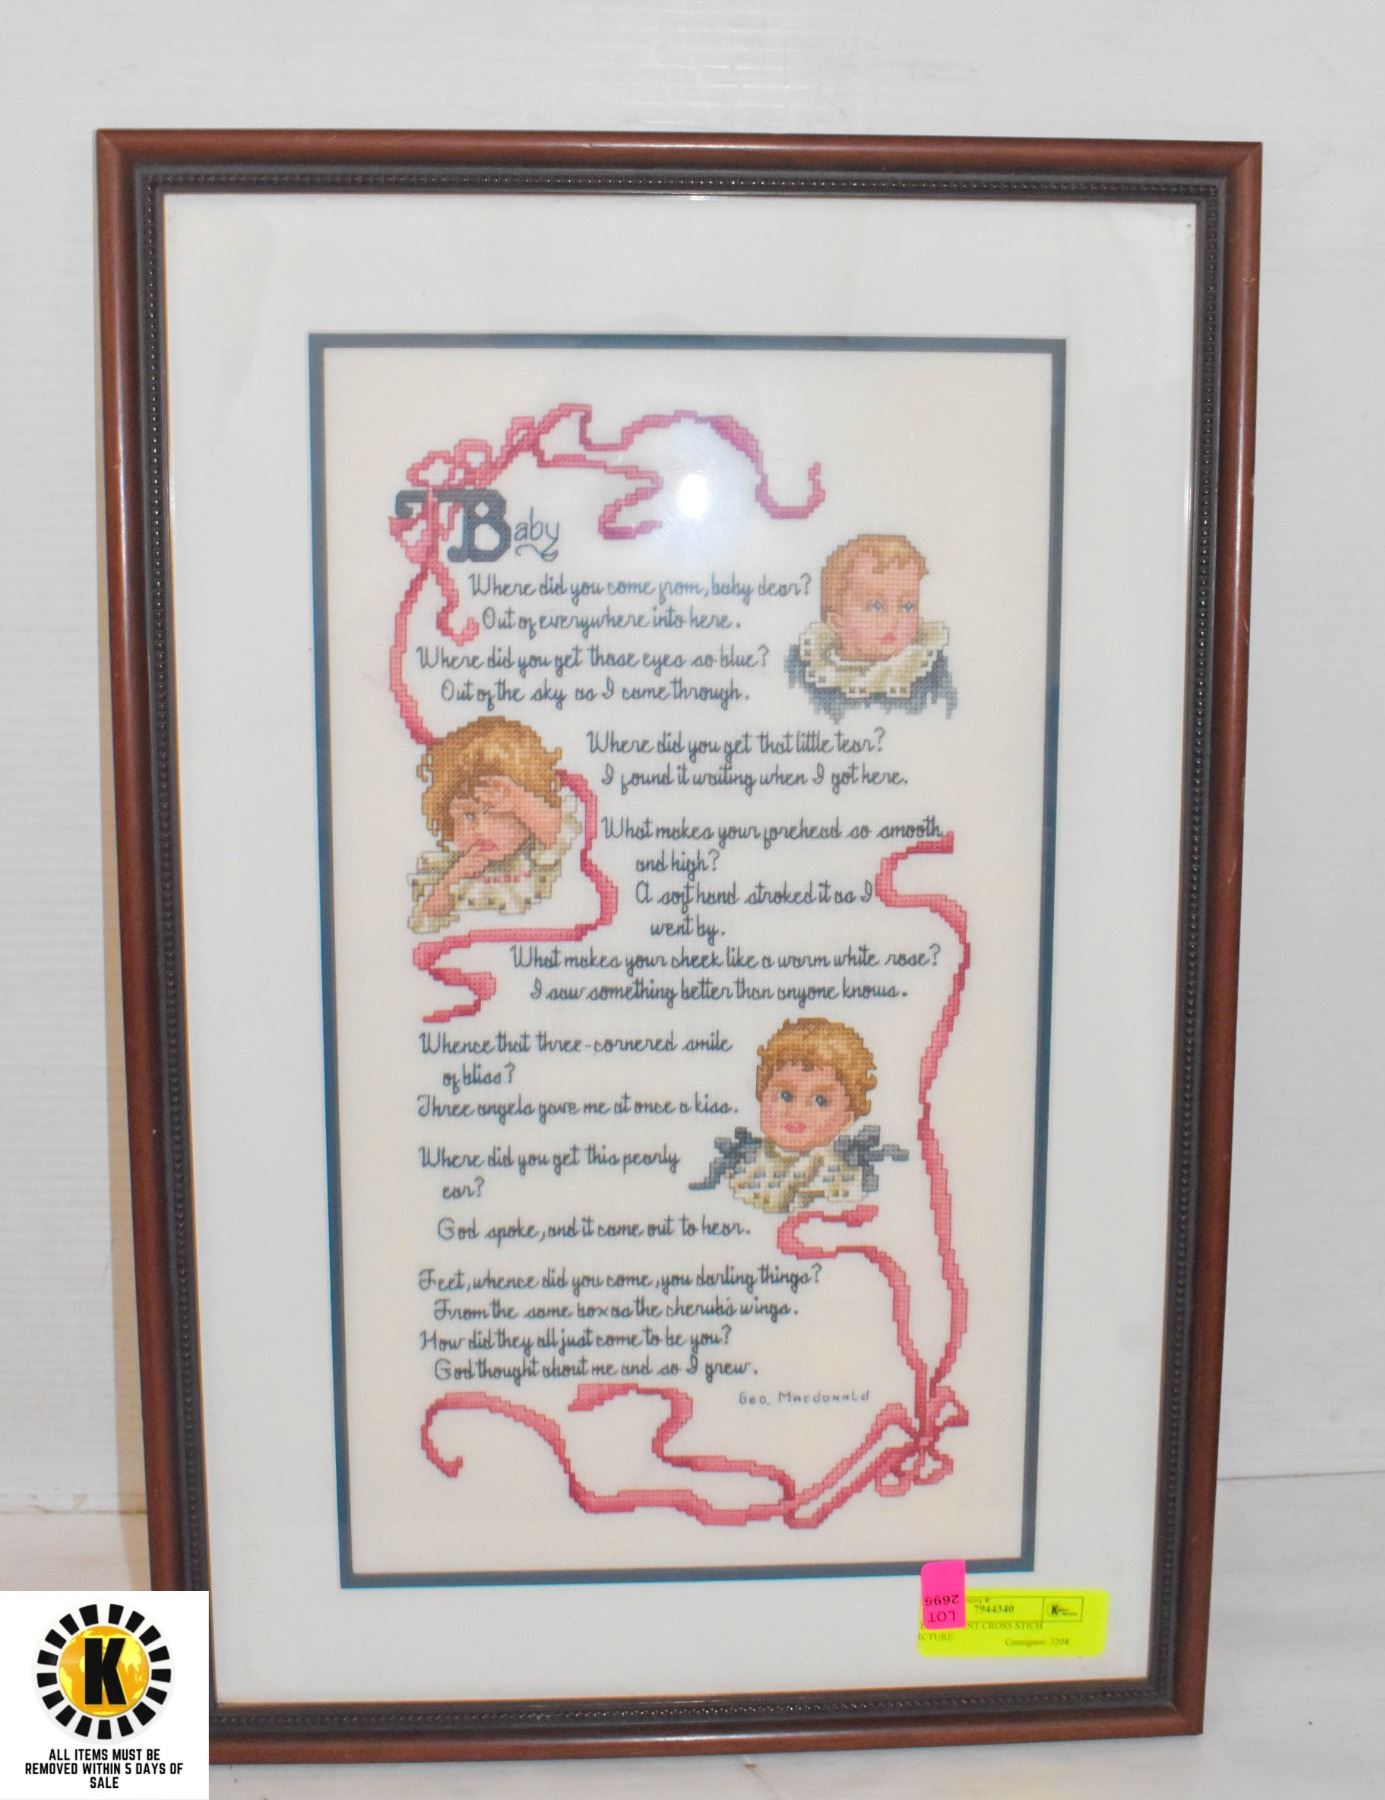 Baby
Where did you come from, baby dear?
Out of everywhere into here.
Where did you get those eyes so blue?
Out of the sky as I came through.
Where did you get that little tear?
I found it waiting when I got here.
What makes your forehead so smooth
and high?
A soft hand stroked it as I
went by.
What makes your cheek like a warm white rose?
I saw something better than anyone knows.
Whence that three-cornered smile
of bliss?
Three angels gave me at once a kiss.
Where did you get this pearly
ear?
God spoke, and it came out to hear.
Feet, whence did you come, you darling things?
From the same box as the cherub's wings.
How did they all just come to be you?
God thought about me and so I grew.
Geo. Macdonald
LOT
2695
7944340
K
CROSS STICH
Consignor: 3208
K
ALL ITEMS MUST BE
REMOVED WITHIN 5 DAYS OF
SALE